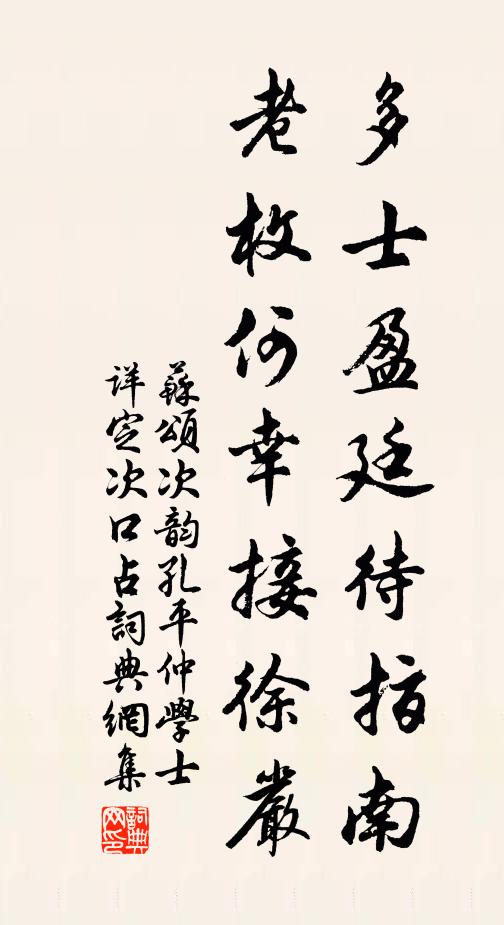 多士盈廷待指南
老枚何幸接徐嚴
蘇頌次韵孔平仲學士
详定次口占詞典網集
詞典网印